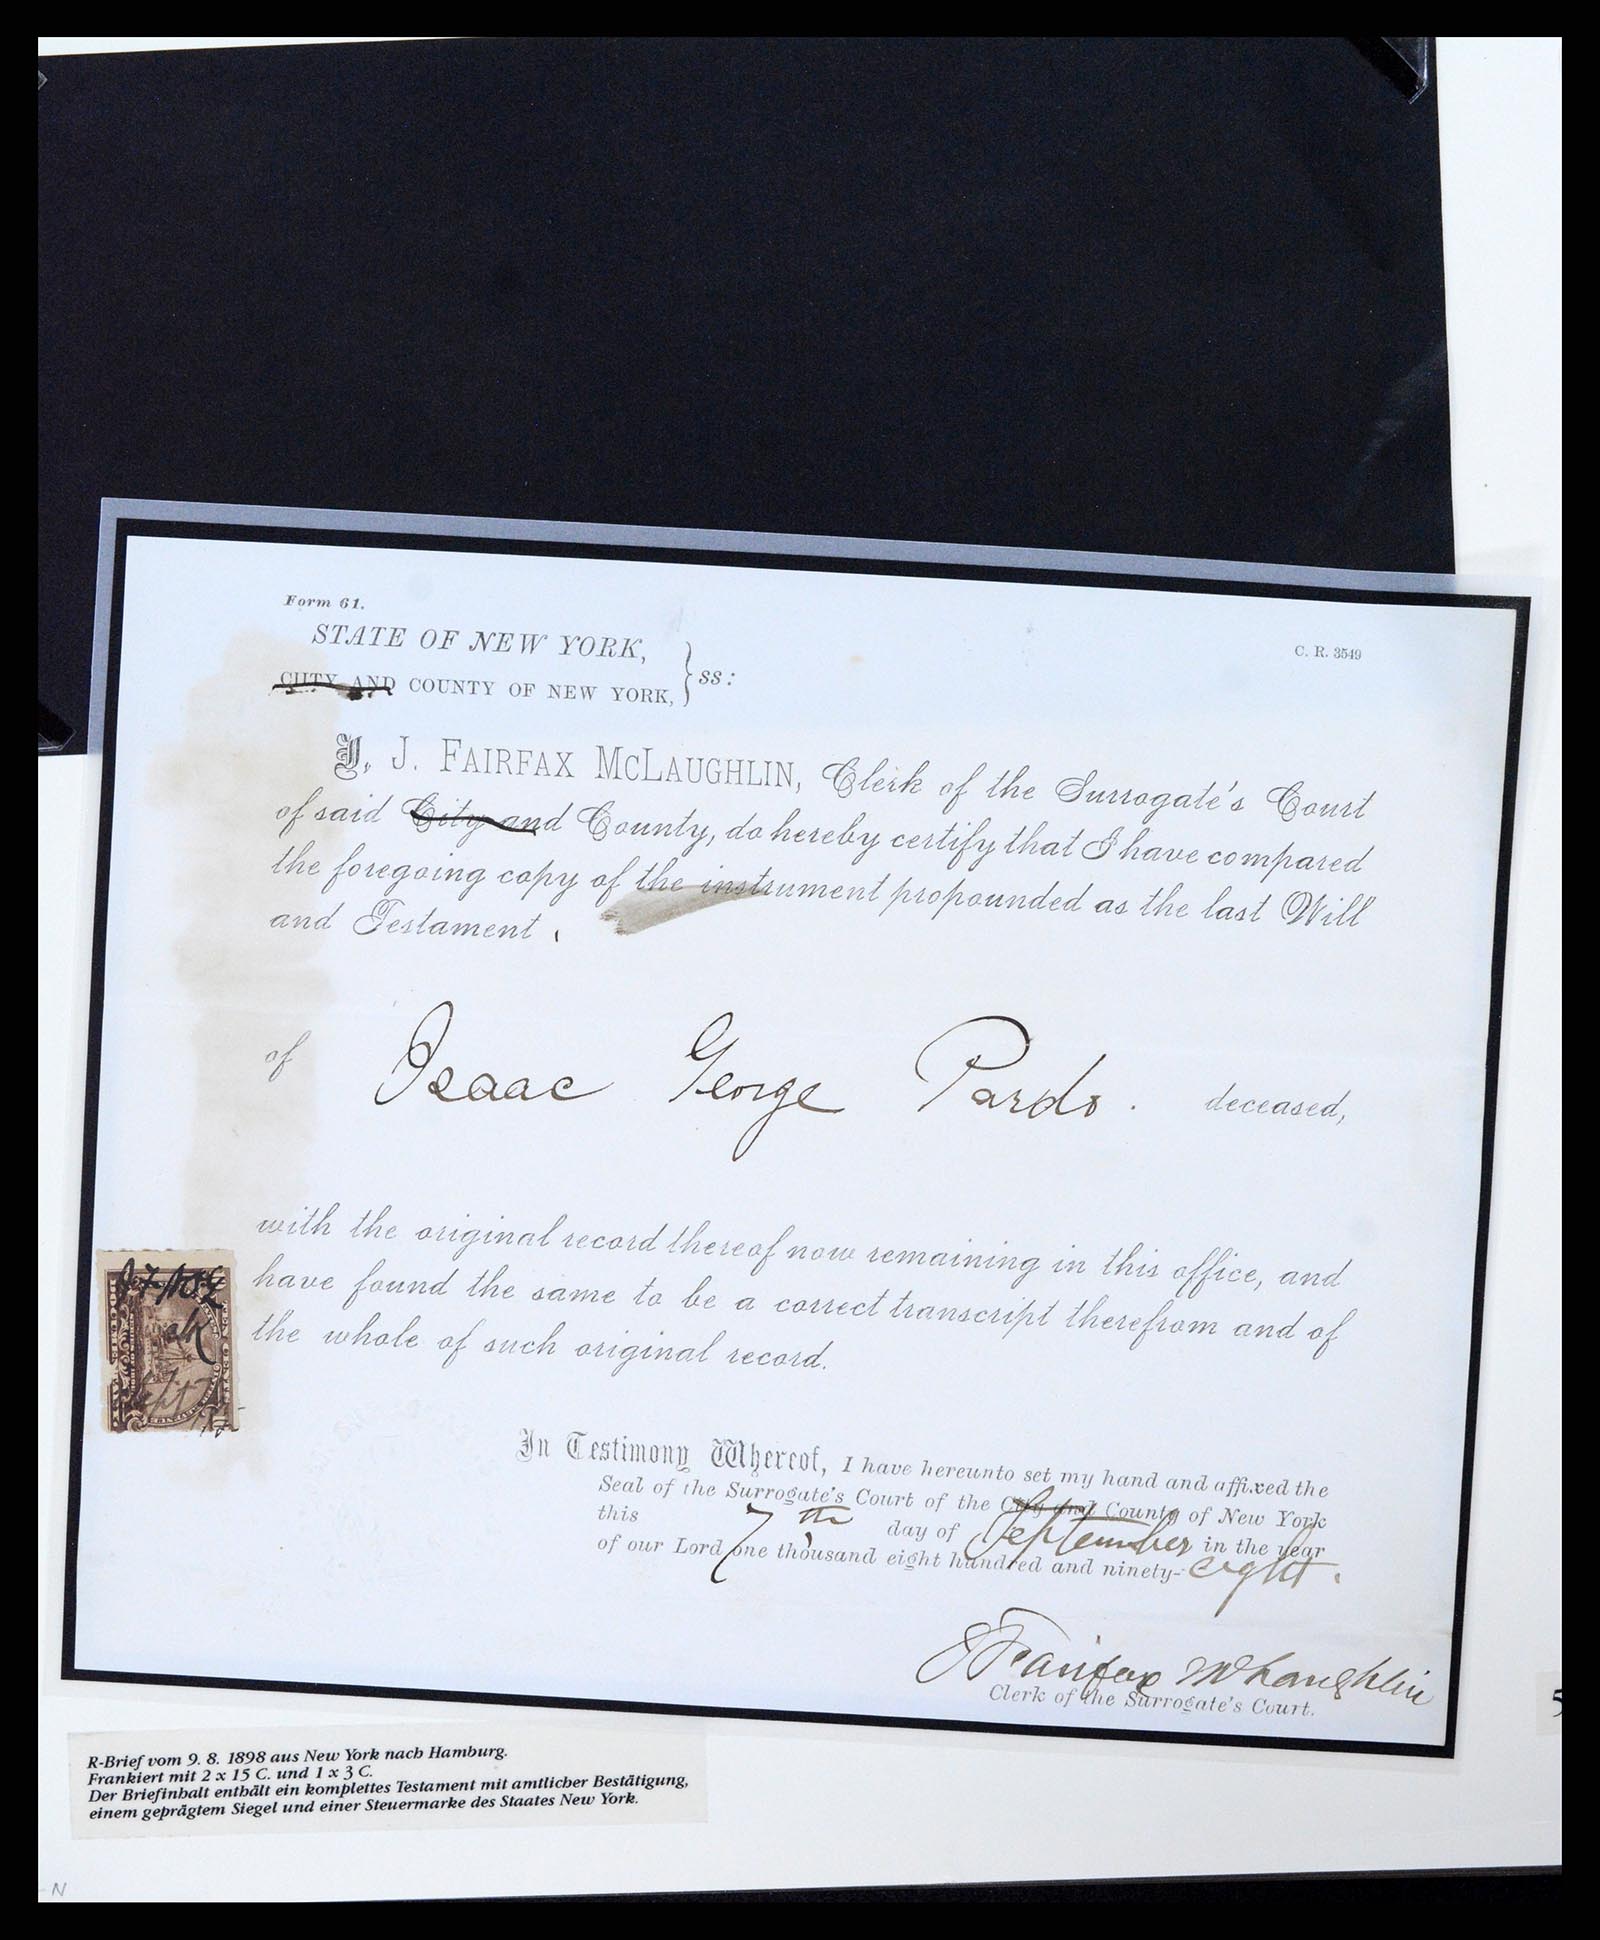 Form 61.
STATE OF NEW YORK,
CITY AND COUNTY OF NEW YORK, } ss:
C. R. 3549
I, J. FAIRFAX MCLAUGHLIN, Clerk of the Surrogate's Court
of said City and County, do hereby certify that I have compared
the foregoing copy of the instrument propounded as the last Will
and Testament
of Isaac George Pardo. deceased,
with the original record thereof now remaining in this office, and
have found the same to be a correct transcript therefrom and of
the whole of such original record.
In Testimony Whereof, I have hereunto set my hand and affixed the
Seal of the Surrogate's Court of the City and County of New York
this 7th day of September in the year
of our Lord one thousand eight hundred and ninety-eight.
J Fairfax McLaughlin
Clerk of the Surrogate's Court.
R-Brief vom 9. 8. 1898 aus New York nach Hamburg.
Frankiert mit 2 x 15 C. und 1 x 3 C.
Der Briefinhalt enthält ein komplettes Testament mit amtlicher Bestätigung,
einem geprägtem Siegel und einer Steuermarke des Staates New York.
5
N